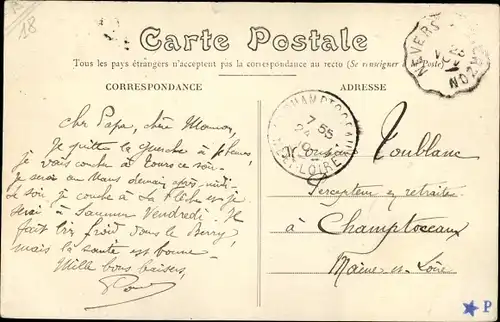 18
Carte Postale
Tous les pays étrangers n'acceptent pas la correspondance au recto (Se renseigner à la Poste)
CORRESPONDANCE
ADRESSE
NEVERS
CHAMPTOCEAUX
7 55
24
LOIRE
Cher Papa, chère Maman,
Je quitte la Guerche à
je vais coucher à Tours ce soir
Je serai au Mans demain après midi
Le soir je couche à La Flèche et je
serai à Saumur Vendredi. Il
fait très froid dans le Berry,
mais la santé est bonne
Mille bons baisers,
Monsieur Toublanc
Percepteur en retraite
à Champtoceaux
Maine-et-Loire
P